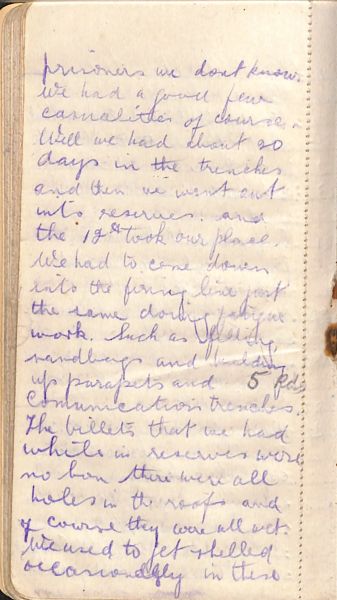 prisoners we dont know.
We had a good few
casualities of course.
Well we had about 20
days in the trenches
and then we went out
into reserves. and
the 12th took our place.
We had to come down
into the firing line just
the same doing fatigue
work. Such as filling
sandbags and building
up parapets and 5 Rds
comunication trenches.
The billets that we had
while in reserves were
no bon there were all
holes in the roofs and
of course they were all wet.
We used to get shelled
occasionally in these